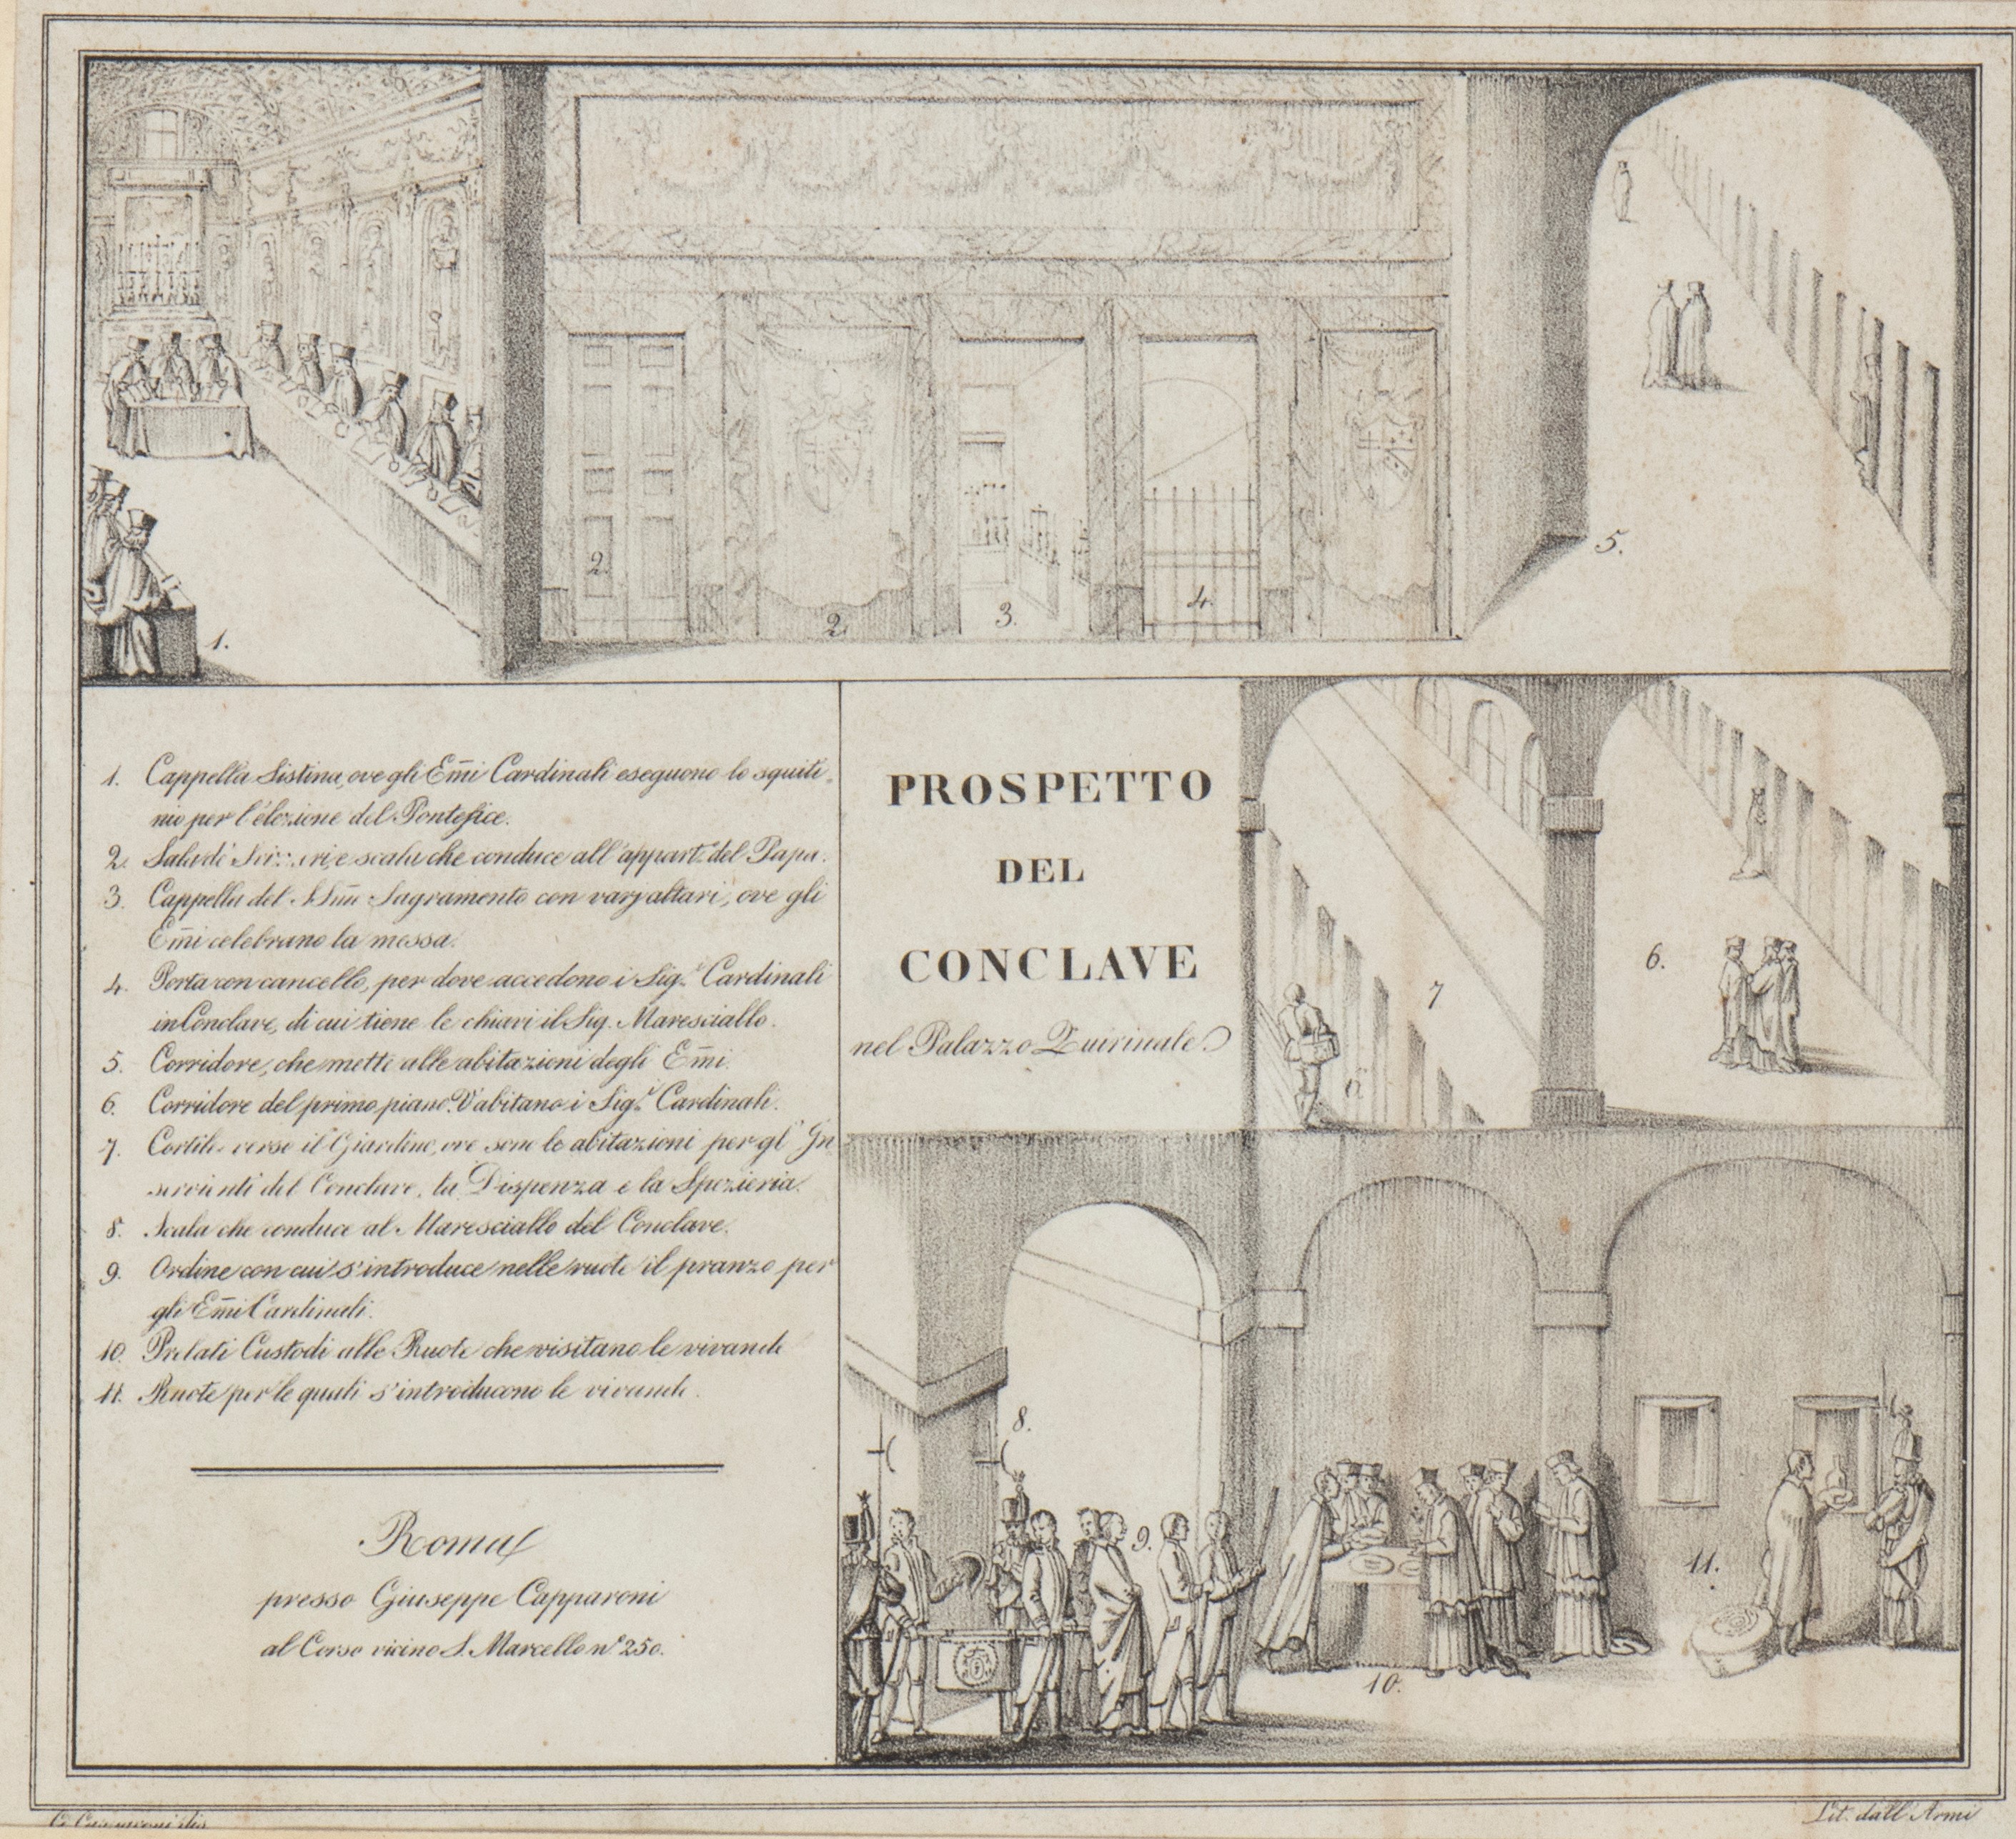 1.
2.
2.
3.
4.
5.
1. Cappella Sistina, ove gli Em̃i Cardinali eseguono lo squiti-
nio per l'elezione del Pontefice.
2. Sala de' e scala che conduce all'appart.º del Papa.
3. Cappella del SSm̃o Sagramento con varj altari, ove gli
Em̃i celebrano la messa.
4. Porta con cancello, per dove accedono i Sig.ⁱ Cardinali
in Conclave, di cui tiene le chiavi il Sig. Maresciallo.
5. Corridore, che mette alle abitazioni degli Em̃i.
6. Corridore del primo piano. V'abitano i Sig.ⁱ Cardinali.
7. Cortile verso il Giardino, ove sono le abitazioni per gl' In
servienti del Conclave, la Dispenza e la Spezieria.
8. Scala che conduce al Maresciallo del Conclave.
9. Ordine con cui s'introduce nelle ruote il pranzo per
gli Em̃i Cardinali.
10. Prelati Custodi alle Ruote che visitano le vivande
11. Ruote per le quali s'introducono le vivande.
Roma
presso Giuseppe Capparoni
al Corso vicino S. Marcello nº 250.
PROSPETTO
DEL
CONCLAVE
nel Palazzo Quirinale
7
6.
6
8.
9.
10.
11.
G. Capparoni dis.
Lit. dall'Armi